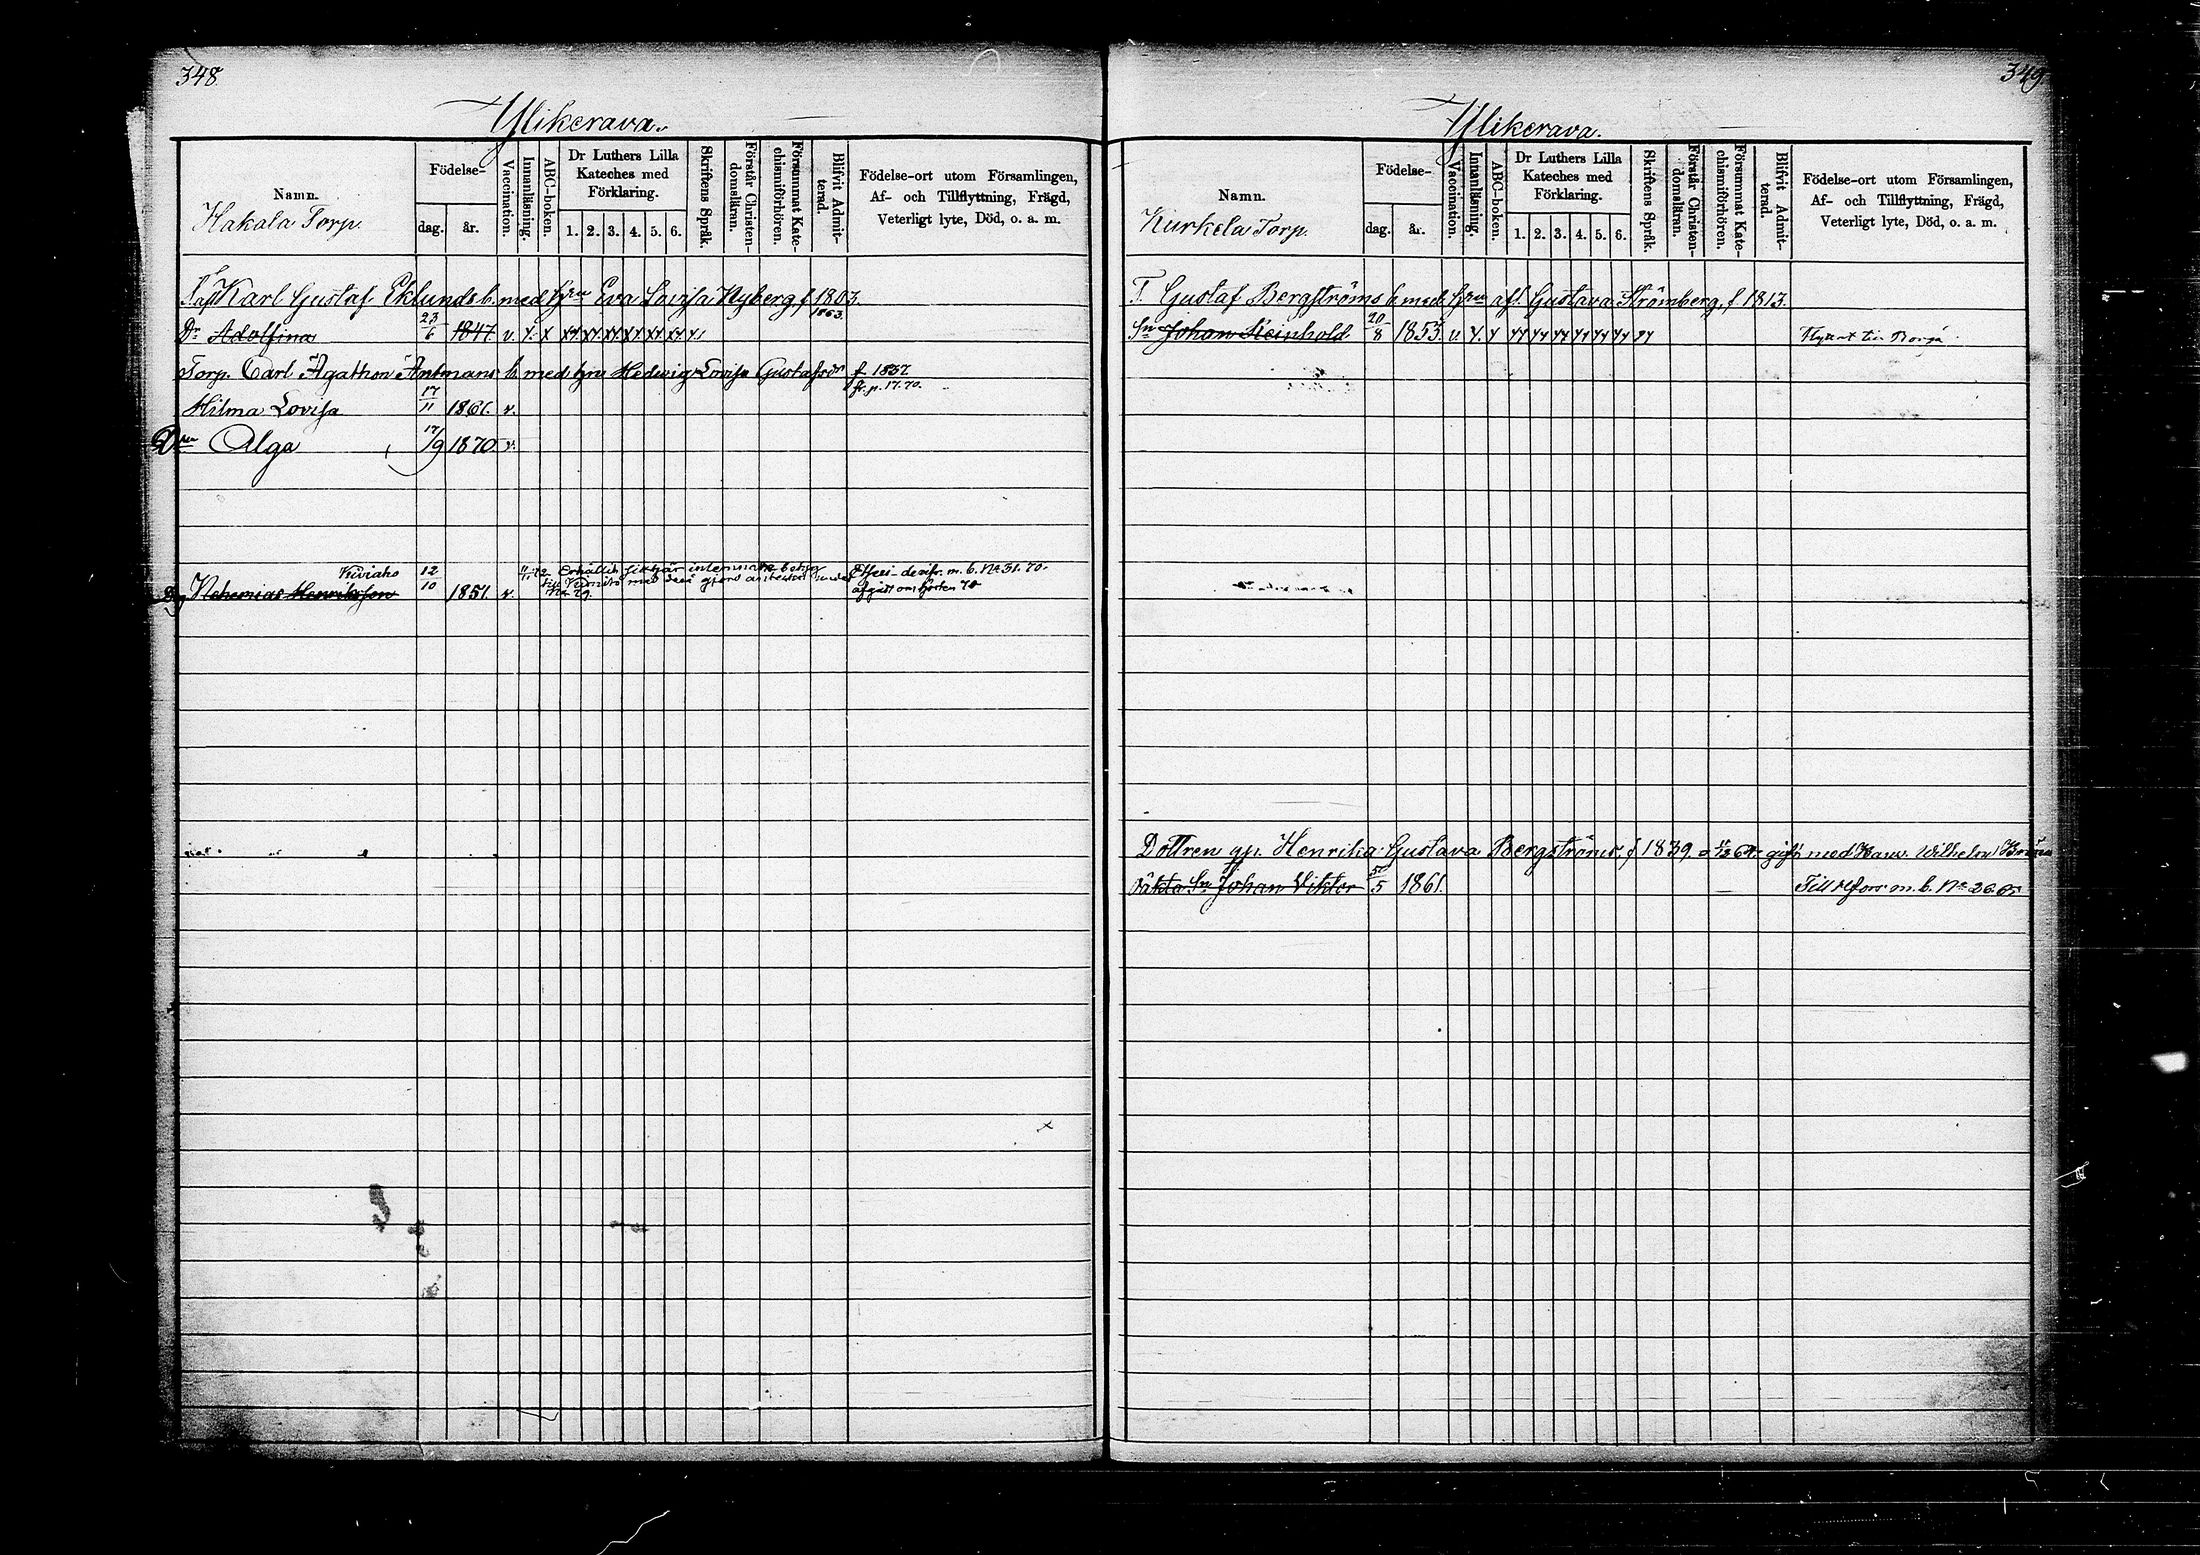 348.
Ylikerava.
Namn.
Hakala Torp.
Födelse-
dag. år.
Vaccination.
Innanläsning.
ABC-boken.
Dr Luthers Lilla Kateches med Förklaring.
1. 2. 3. 4. 5. 6.
Skriftens Språk.
Förstår Christen-domsläran.
Försummat Kate-chismiförhören.
Blifvit Admit-terad.
Födelse-ort utom Församlingen,
Af- och Tillflyttning, Frägd,
Veterligt lyte, Död, o. a. m.
Karl Gustaf Eklunds b. med hru Eva Lovisa Nyberg, f 1803.
1863.
Dr Adolfina 23/6 1847. v.
Torp. Carl Agathon Antmans b. med hru Hedwig Lovisa Gustafsdr f 1837
fr. p. 17. 70.
Hilma Lovisa 17/11 1861. v.
Dren Alga 17/9 1870. v.
Nehemias Henriksson 12/10 1851. v.
m. b. No 31. 70.
349.
Ylikerava.
Namn.
Kurkela Torp.
Födelse-
dag. år.
Vaccination.
Innanläsning.
ABC-boken.
Dr Luthers Lilla Kateches med Förklaring.
1. 2. 3. 4. 5. 6.
Skriftens Språk.
Förstår Christen-domsläran.
Försummat Kate-chismiförhören.
Blifvit Admit-terad.
Födelse-ort utom Församlingen,
Af- och Tillflyttning, Frägd,
Veterligt lyte, Död, o. a. m.
T. Gustaf Bergströms b. med hru afl. Gustava Strömberg, f 1813.
Sn Johan Reinhold 20/8 1853. v. Flyttat till Borgå
Dottren gp. Henrika Gustava Bergströms, f 1839. gift med Wilhelm
oäkta Sn Johan Viktor 1861. Till Hfors m. b. No 26. 65